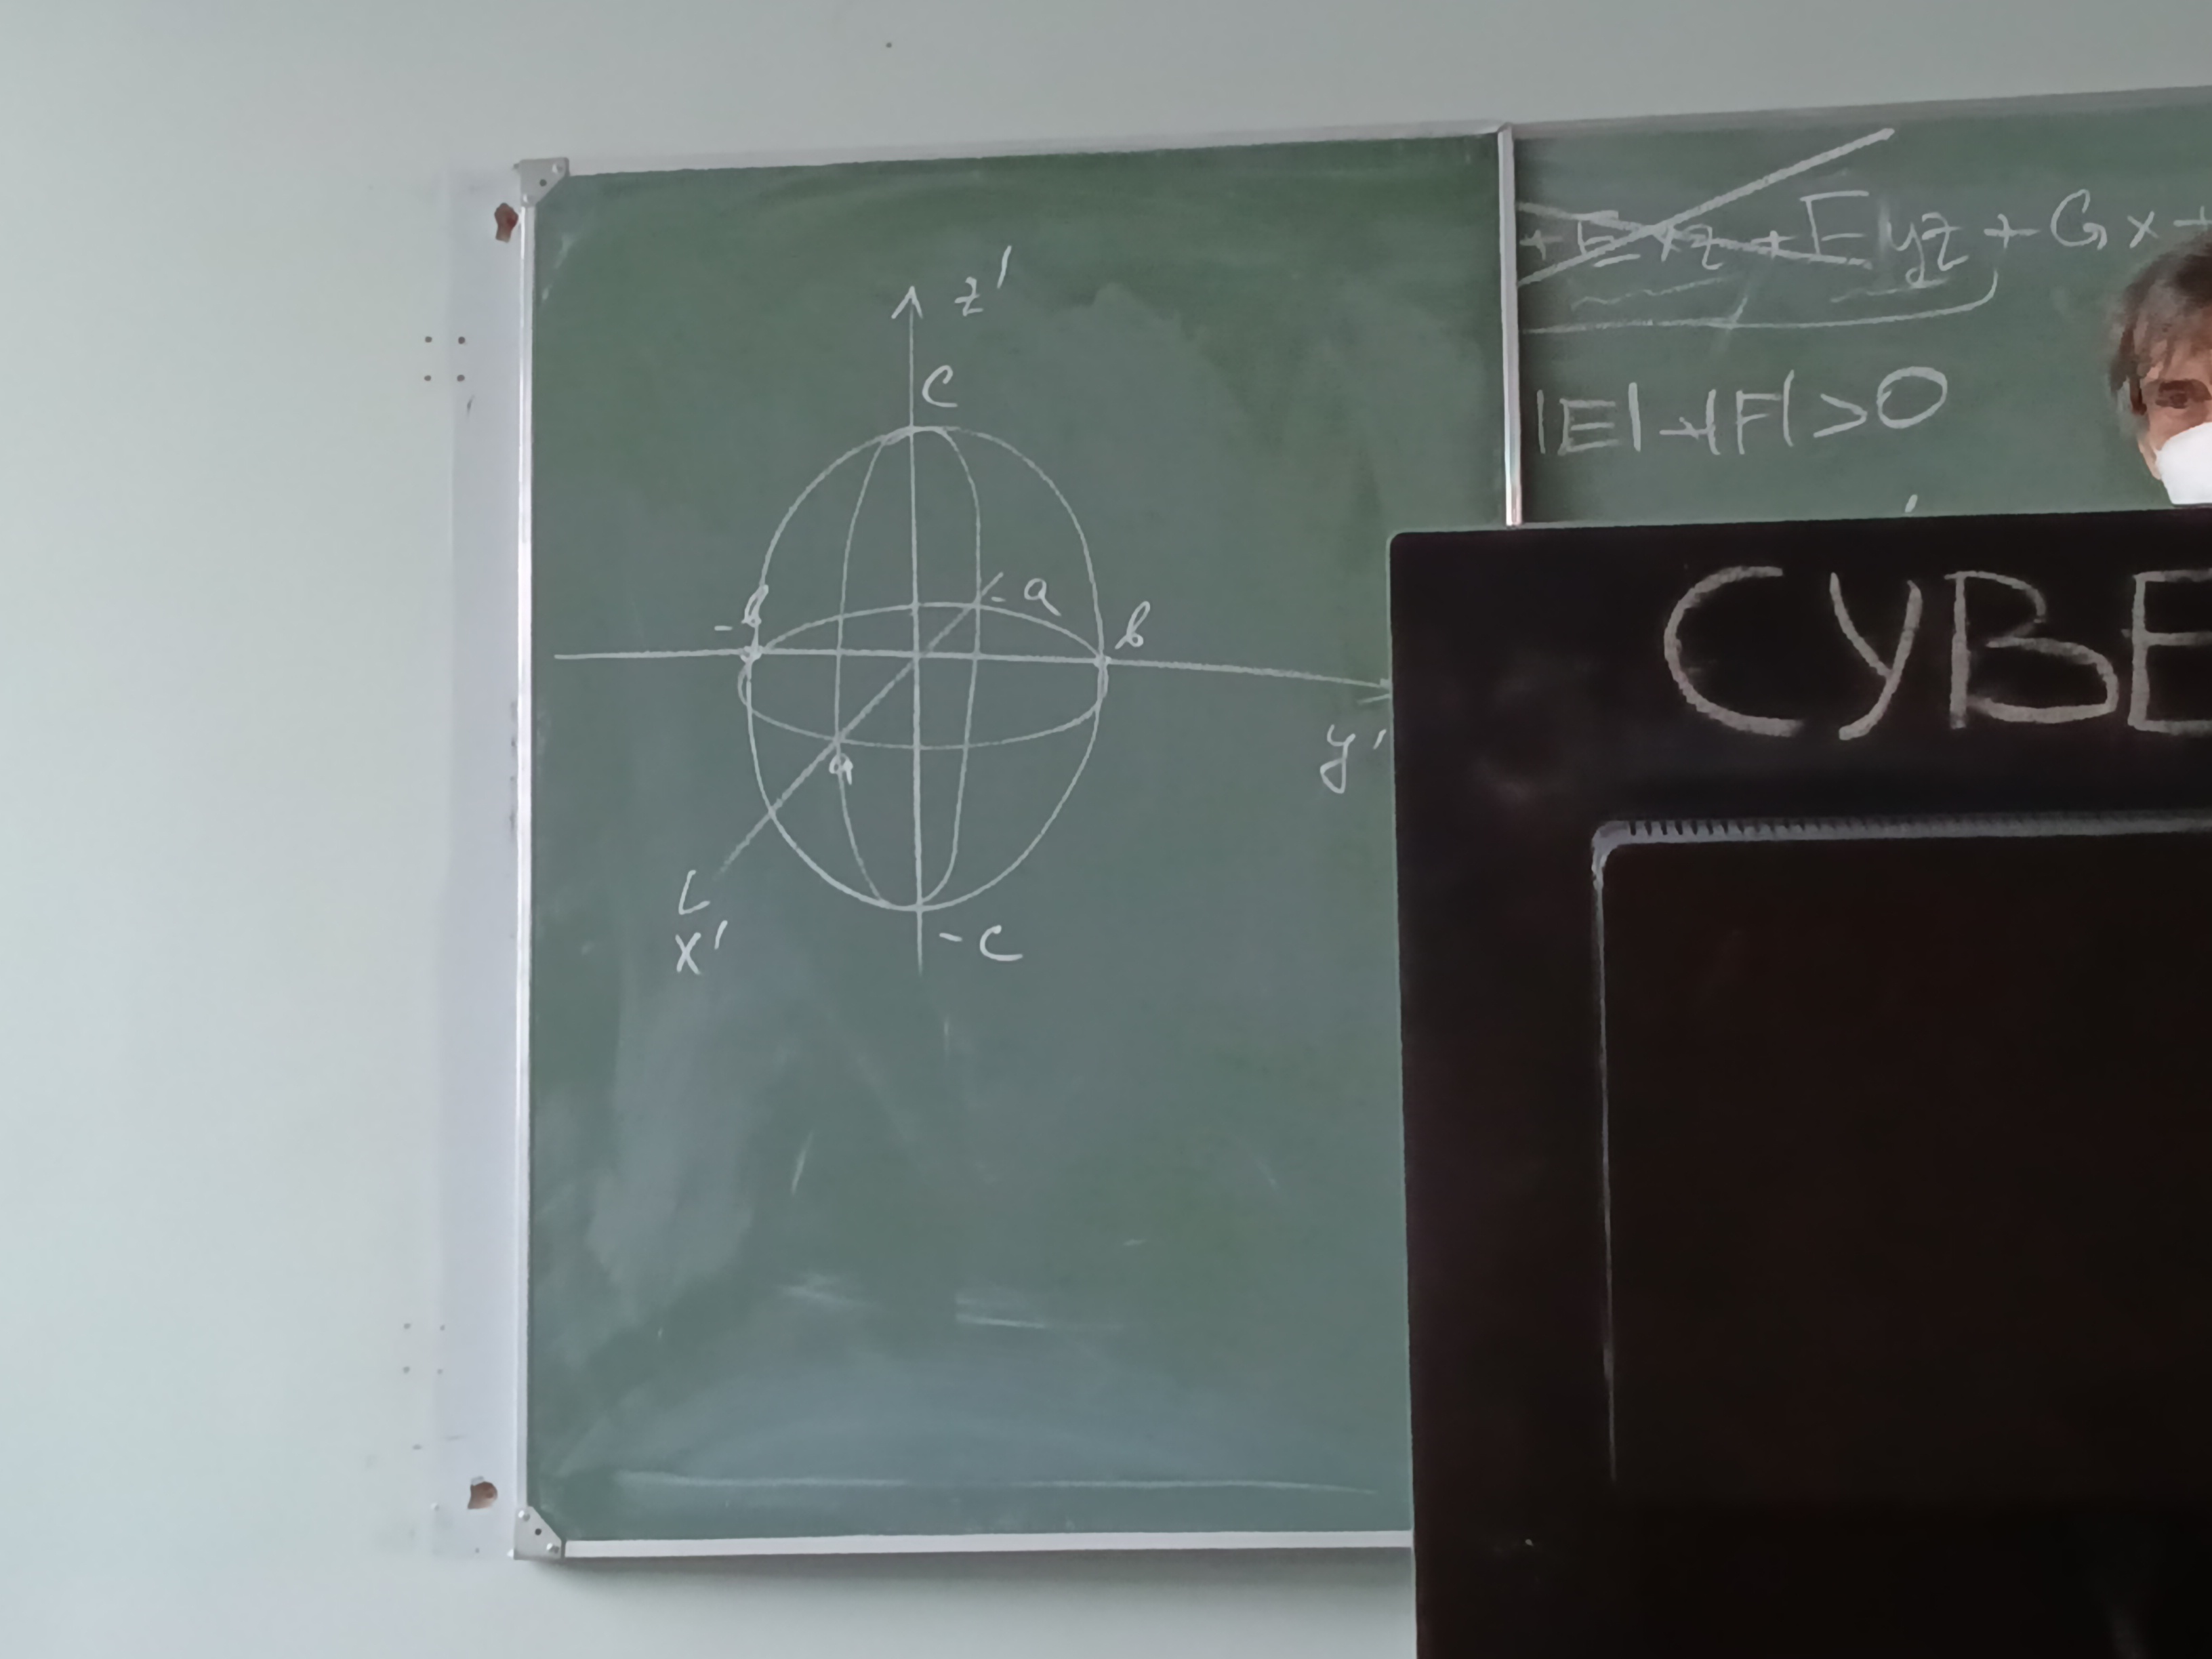 z'
C
-b
-a
b
a
y'
x'
-c
+Exz+Fyz+Gx+
|E|+|F|>0
CYBE